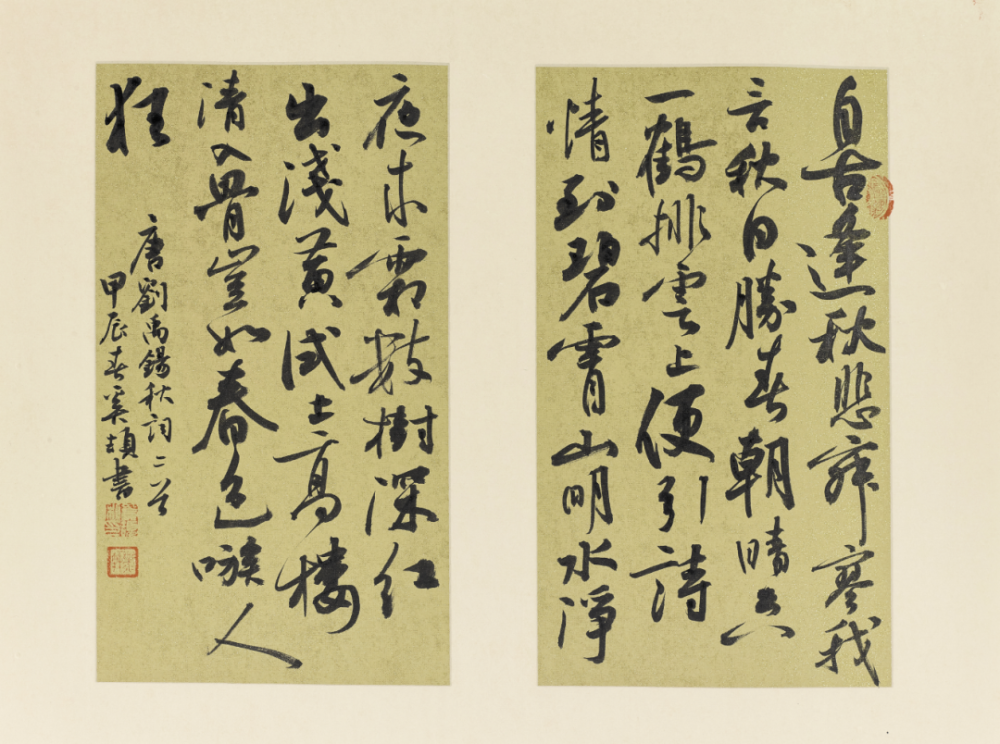 自古逢秋悲寂寥我
言秋日勝春朝晴空
一鶴排雲上便引詩
情到碧霄山明水淨
夜來霜數樹深紅
出淺黃試上高樓
清入骨豈如春色嗾人
狂
唐劉禹錫秋詞二首
甲辰春書